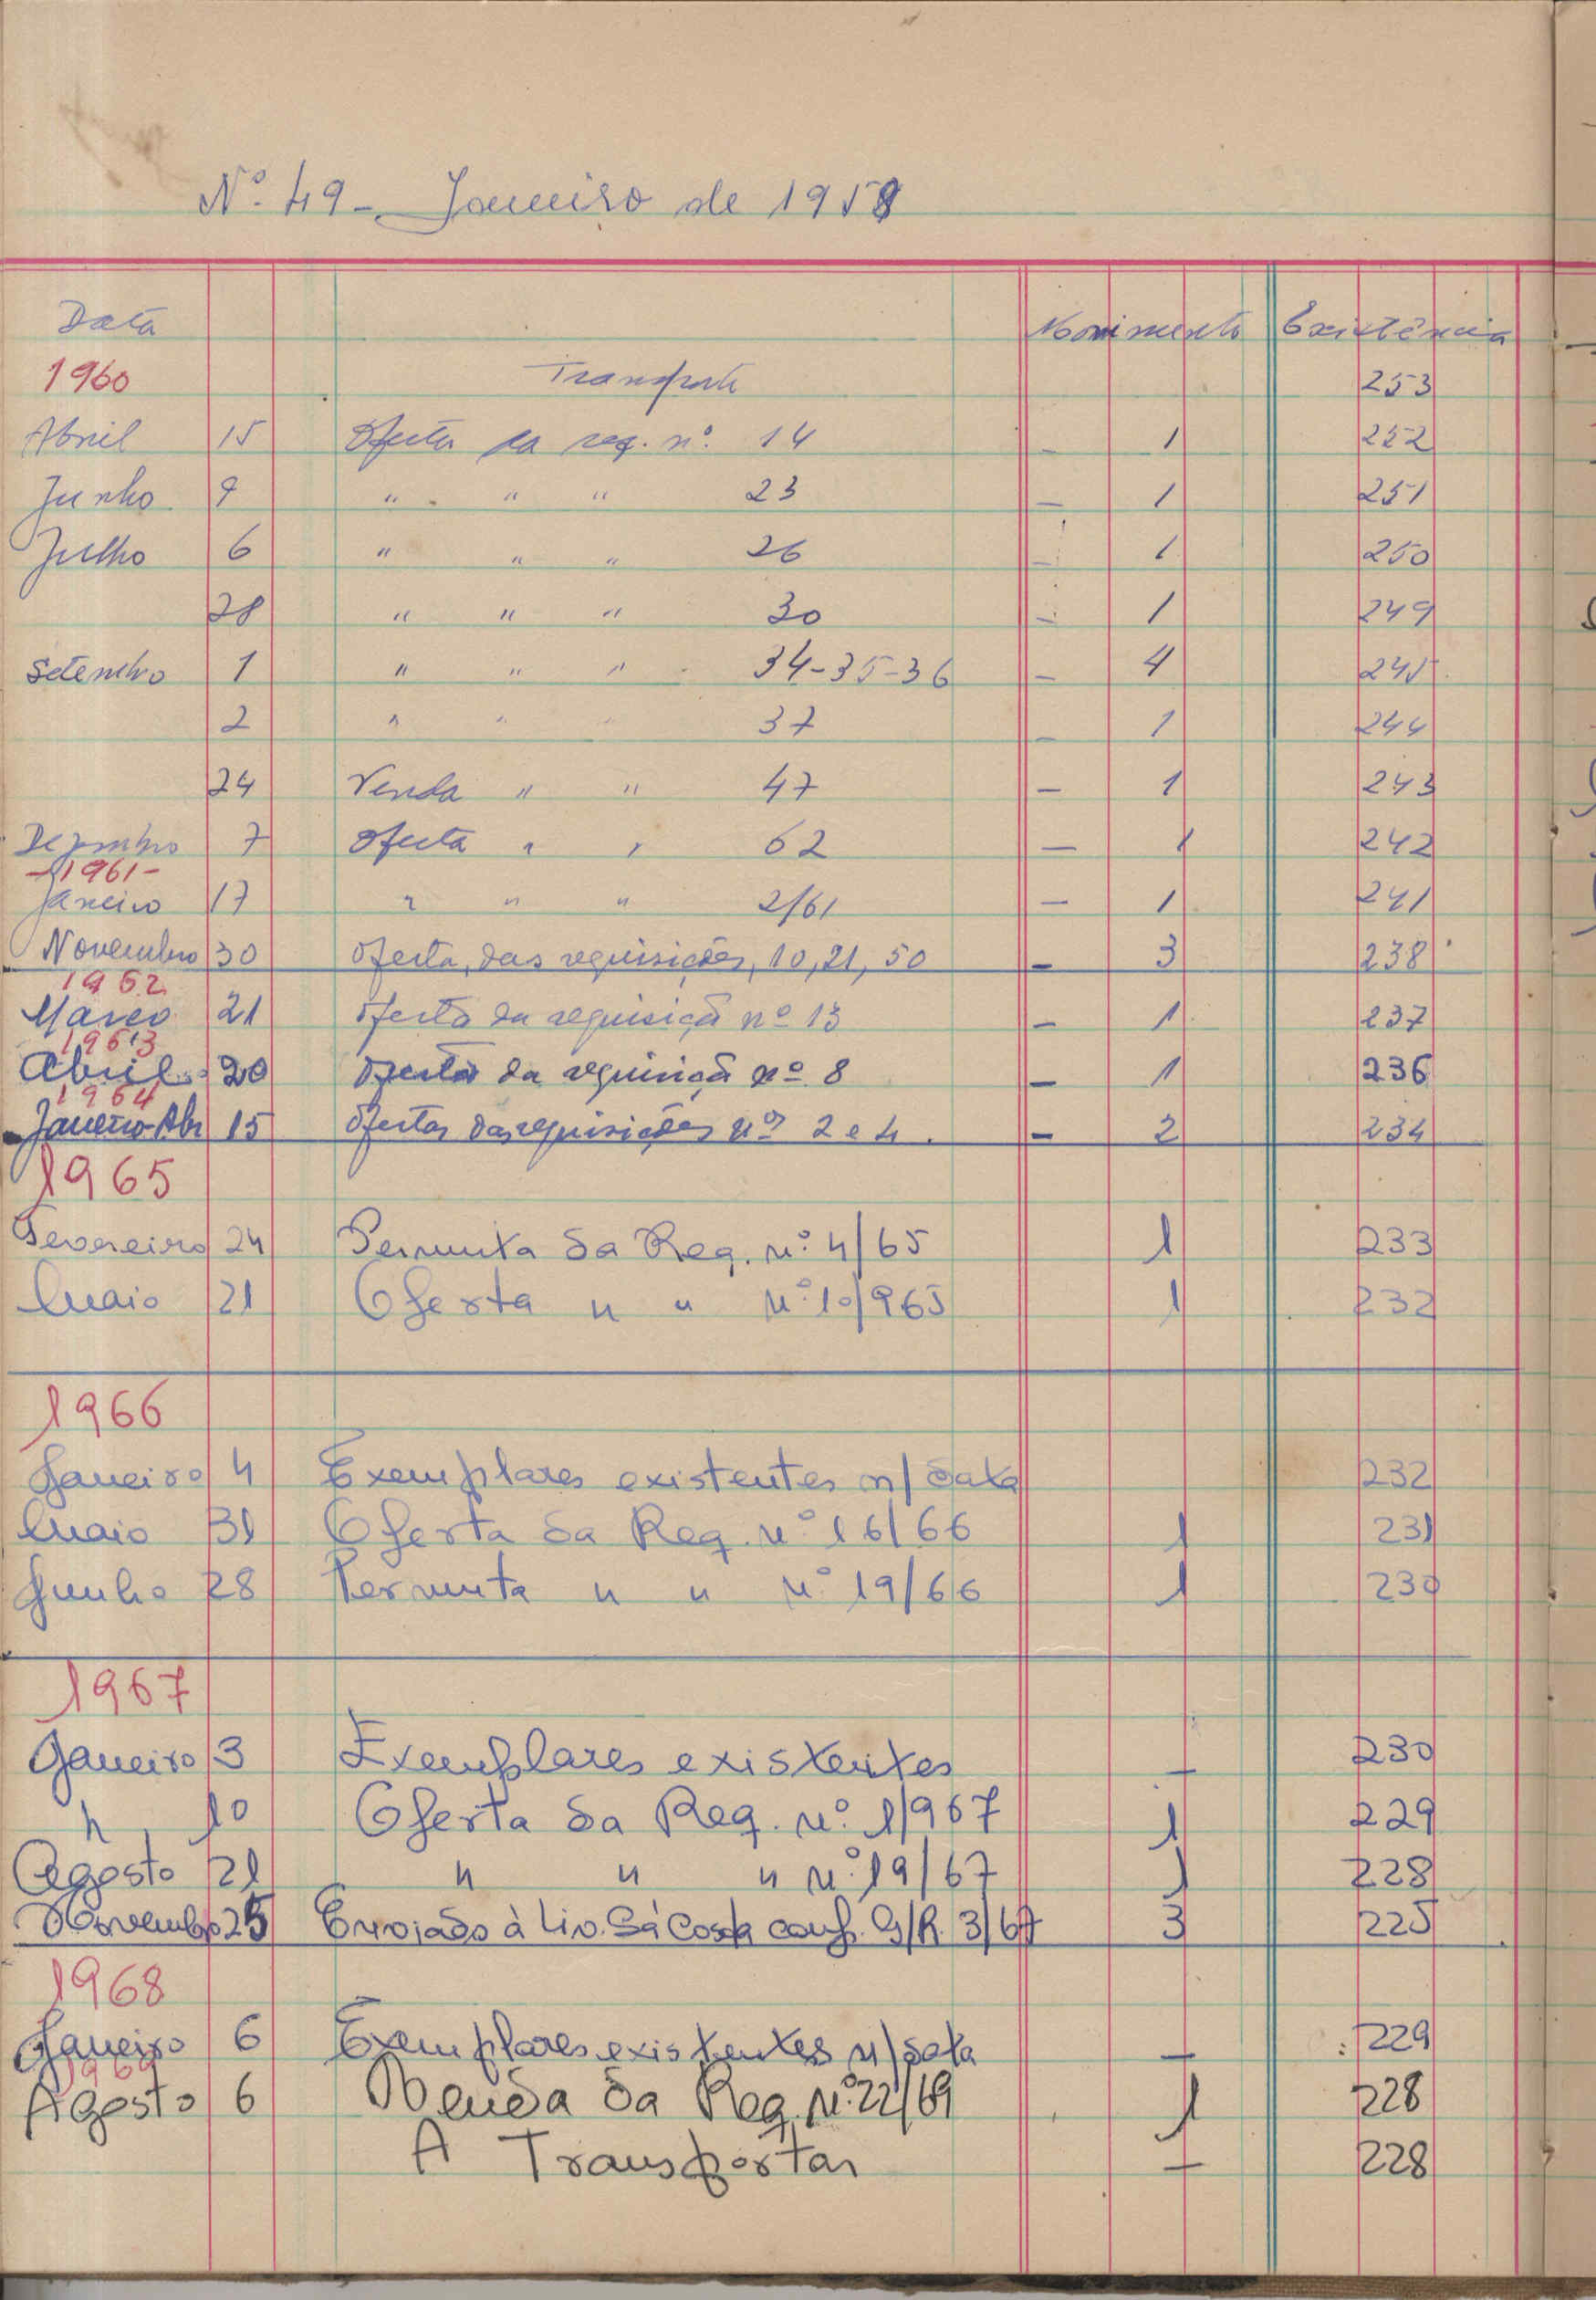 Nº 49 - Janeiro de 1958
Data Movimento Existência
1960 Transporte 253
Abril 15 Oferta da req. nº 14 - 1 252
Junho 9 " " " 23 - 1 251
Julho 6 " " " 26 - 1 250
28 " " " 30 - 1 249
Setembro 1 " " " 34-35-36 - 4 245
2 " " " 37 - 1 244
24 Venda " " 47 - 1 243
Dezembro 7 Oferta " " 62 - 1 242
-1961-
Janeiro 17 " " " 2/61 - 1 241
Novembro 30 Oferta, das requisições, 10, 21, 50 - 3 238
1962
Março 21 Oferta da requisição nº 13 - 1 237
1963
Abril 20 Oferta da requisição nº 8 - 1 236
1964
Janeiro-Abr 15 Ofertas das requisições nºs 2 e 4. - 2 234
1965
Fevereiro 24 Permuta da Req. nº 4/65 1 233
Maio 21 Oferta " " nº 10/965 1 232
1966
Janeiro 4 Exemplares existentes n/data 232
Maio 31 Oferta da Req. nº 16/66 1 231
Junho 28 Permuta " " nº 19/66 1 230
1967
Janeiro 3 Exemplares existentes - 230
" 10 Oferta da Req. nº 1/967 1 229
Agosto 21 " " " nº 19/67 1 228
Novembro 25 Enviado à Liv. Sá Costa conf. G/R. 3/67 3 225
1968
Janeiro 6 Exemplares existentes n/data - 229
1969
Agosto 6 Venda da Req. nº 22/69 1 228
A Transportar - 228